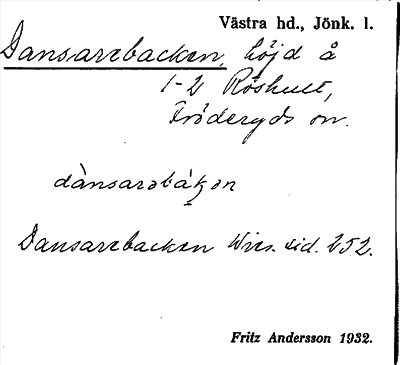 Västra hd., Jönk. l.
Dansarebacken, höjd å
1-2 Röshult,
Fröderyds sn.
dànsarəbák̬ən
Dansarebacken Wies. sid. 252.
Fritz Andersson 1932.